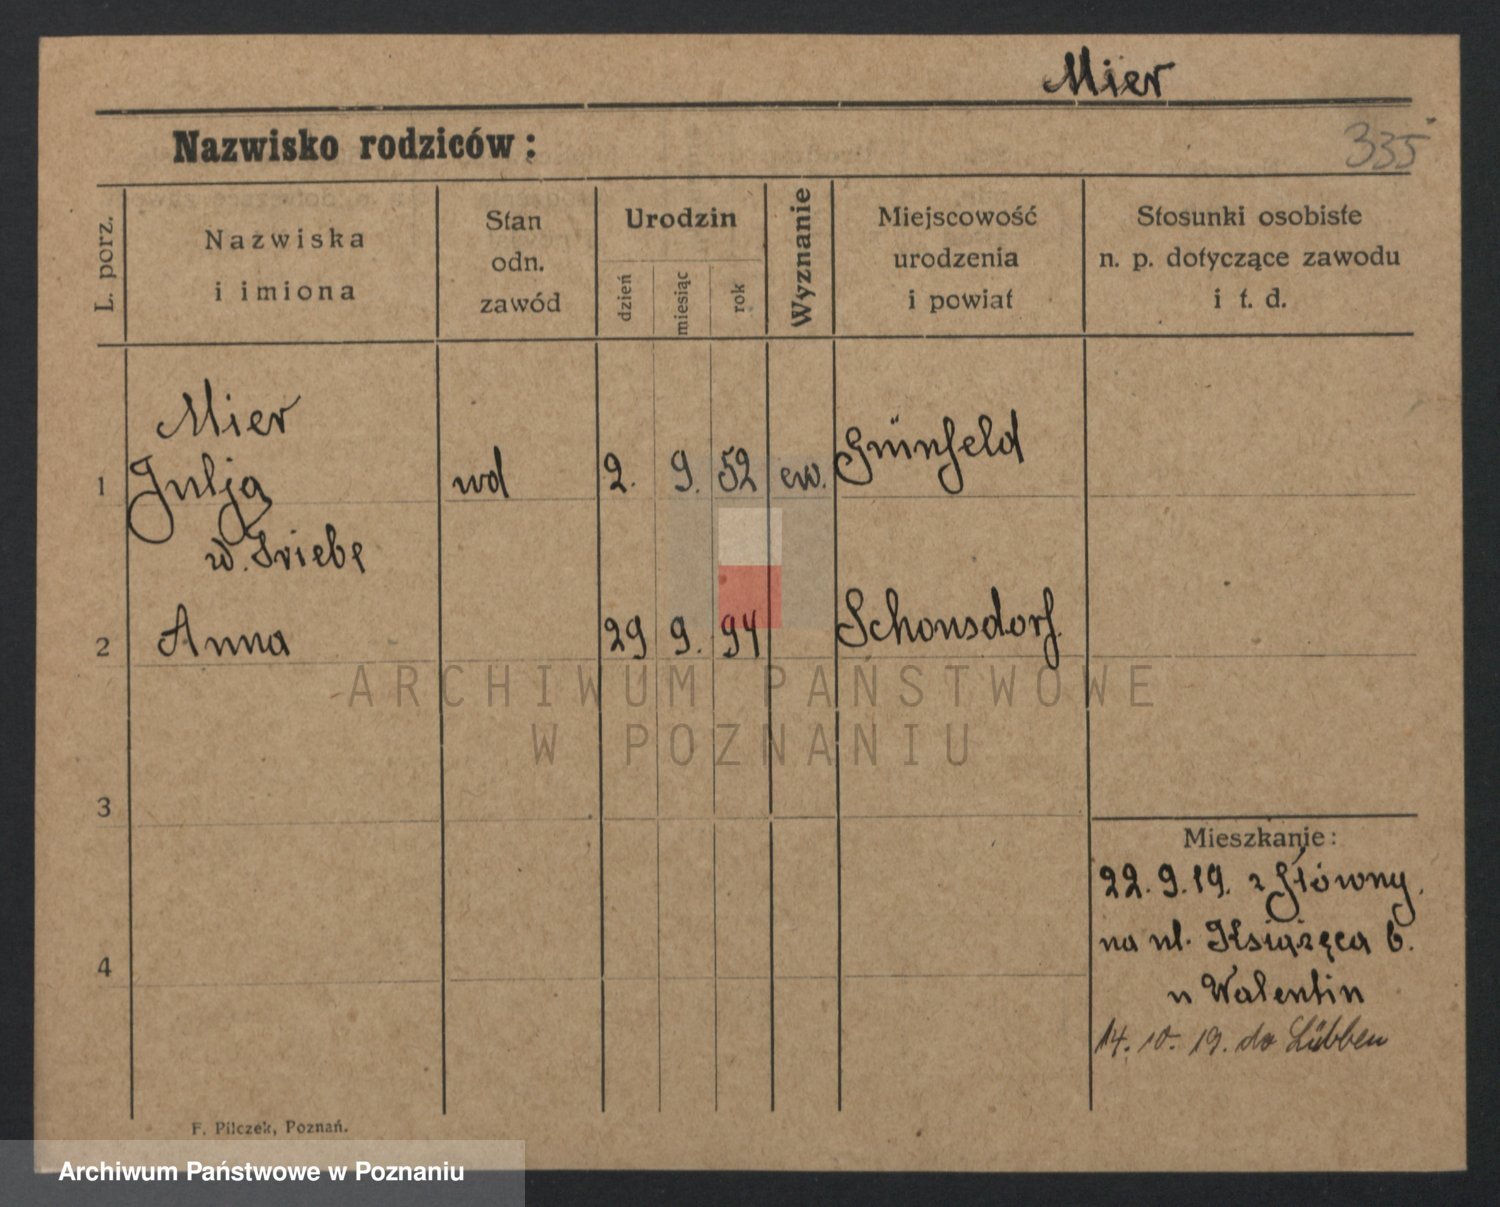 Mier
Nazwisko rodziców:
335
L. porz.
Nazwiska
i imiona
Stan
odn.
zawód
Urodzin
dzień
miesiąc
rok
Wyznanie
Miejscowość
urodzenia
i powiat
Stosunki osobiste
n. p. dotyczące zawodu
i t. d.
Mier
1 Julja wd 2. 9. 52 ew. Grünfeld
w. Triebe
2 Anna 29 9. 94 Schonsdorf.
ARCHIWUM PAŃSTWOWE
W POZNANIU
3
Mieszkanie:
22. 9. 19. z Główny.
na ul. Książęca 6.
4
u Walentin
14. 10. 19. do Lübben
F. Pilczek, Poznań.
Archiwum Państwowe w Poznaniu